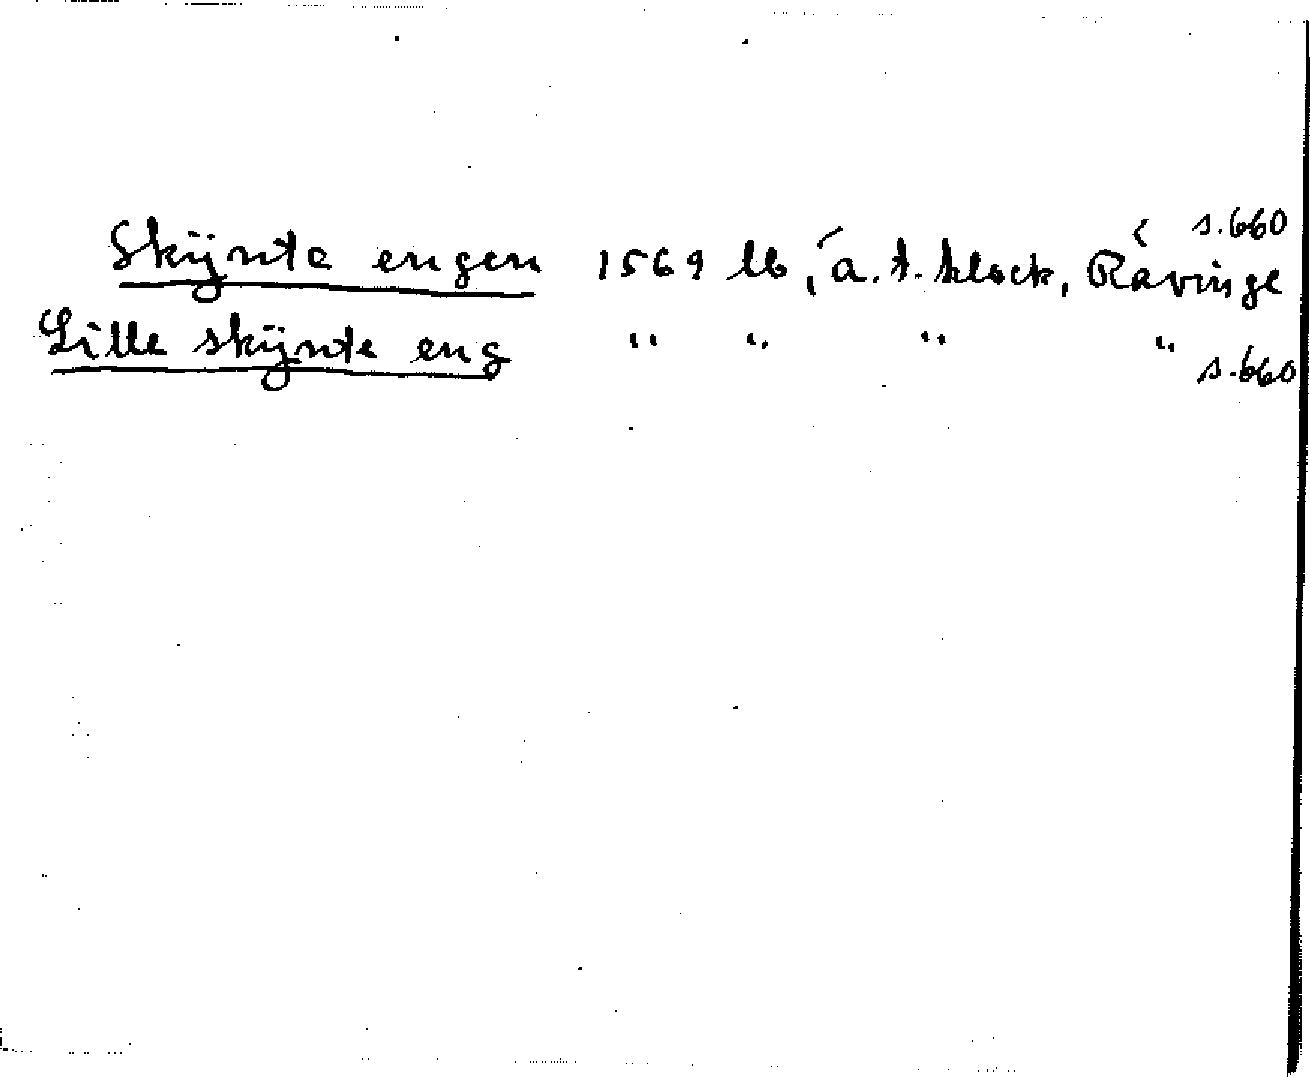 s.660
Skÿnte engen 1569 lb, á.t. klock, Råvinge
Lille skÿnte eng " " " "
s.660